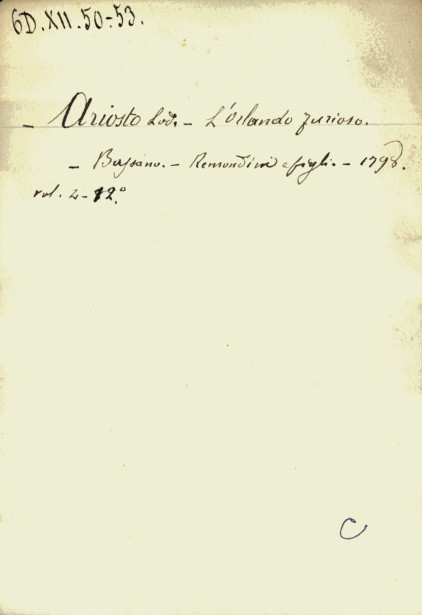 6D.XII.50-53.
- Ariosto Lod. - L'Orlando furioso.
- Bassano. - Remondini e figli. - 1798.
vol. 4 - 12°.
C